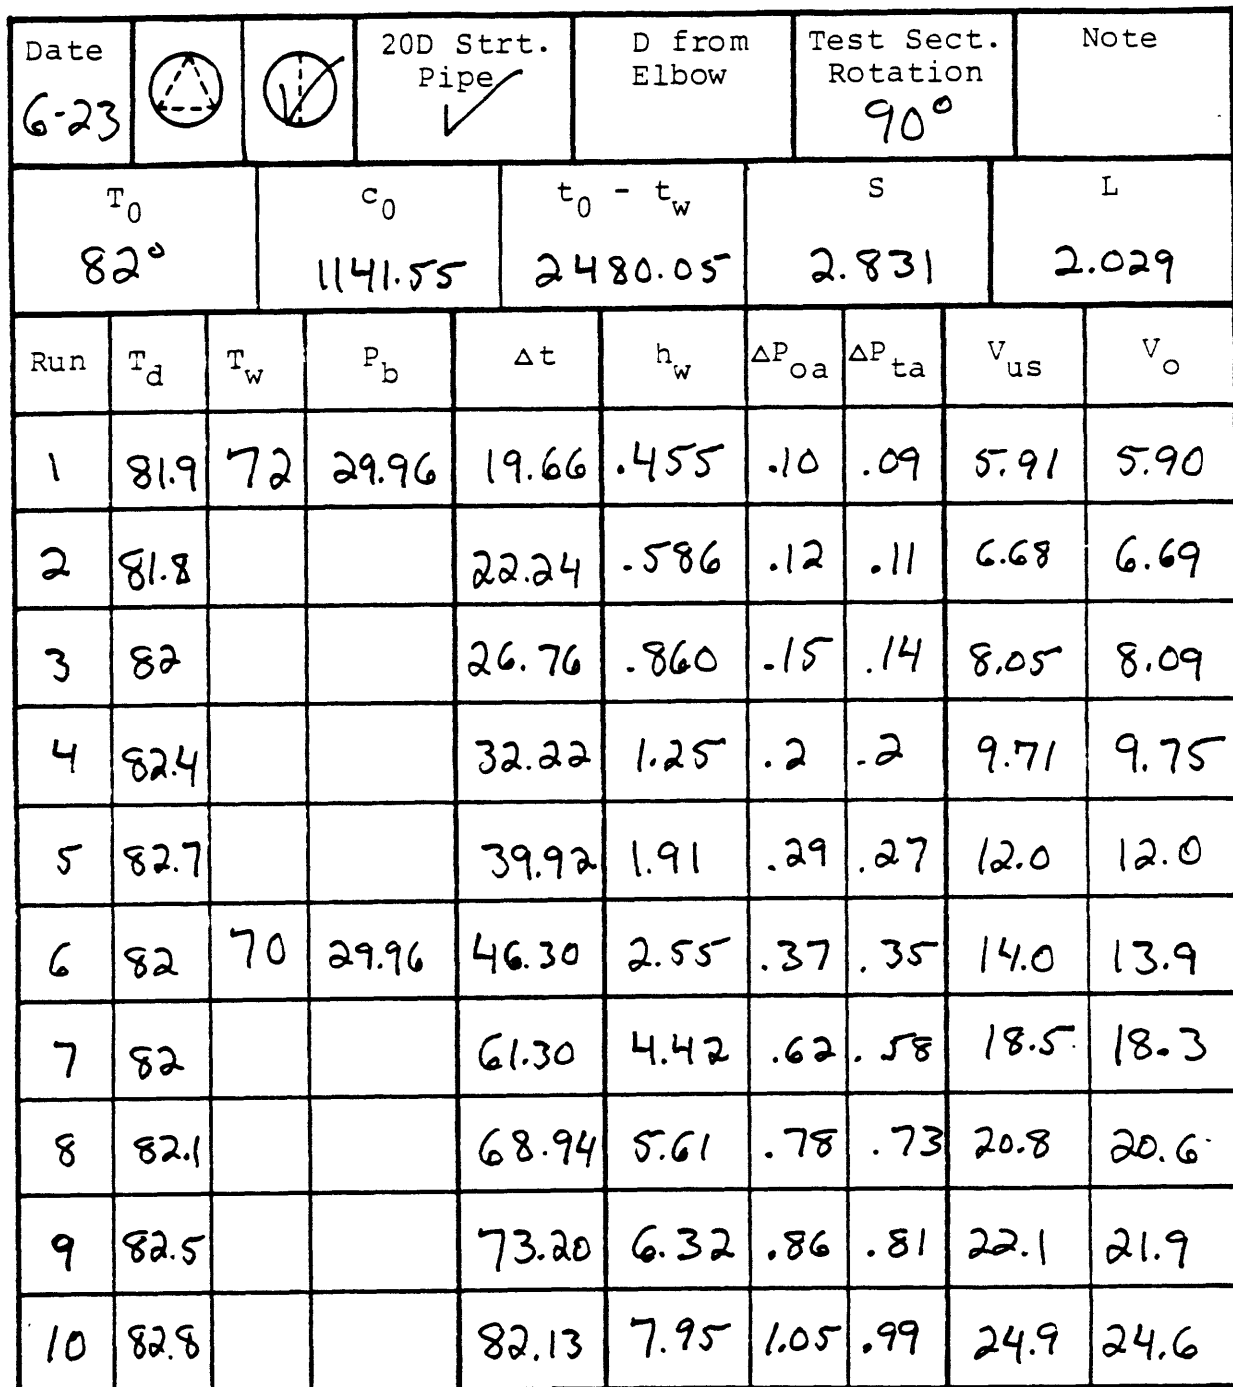 Date 20D Strt. D from Test Sect. Note
Pipe ✓ Elbow Rotation
6-23 90°
T0 c0 t0 - tw S L
82° 1141.55 2480.05 2.831 2.029
Run Td Tw Pb Δt hw ΔPoa ΔPta Vus Vo
1 81.9 72 29.96 19.66 .455 .10 .09 5.91 5.90
2 81.8 22.24 .586 .12 .11 6.68 6.69
3 82 26.76 .860 .15 .14 8.05 8.09
4 82.4 32.22 1.25 .2 .2 9.71 9.75
5 82.7 39.92 1.91 .29 .27 12.0 12.0
6 82 70 29.96 46.30 2.55 .37 .35 14.0 13.9
7 82 61.30 4.42 .62 .58 18.5 18.3
8 82.1 68.94 5.61 .78 .73 20.8 20.6
9 82.5 73.20 6.32 .86 .81 22.1 21.9
10 82.8 82.13 7.95 1.05 .99 24.9 24.6